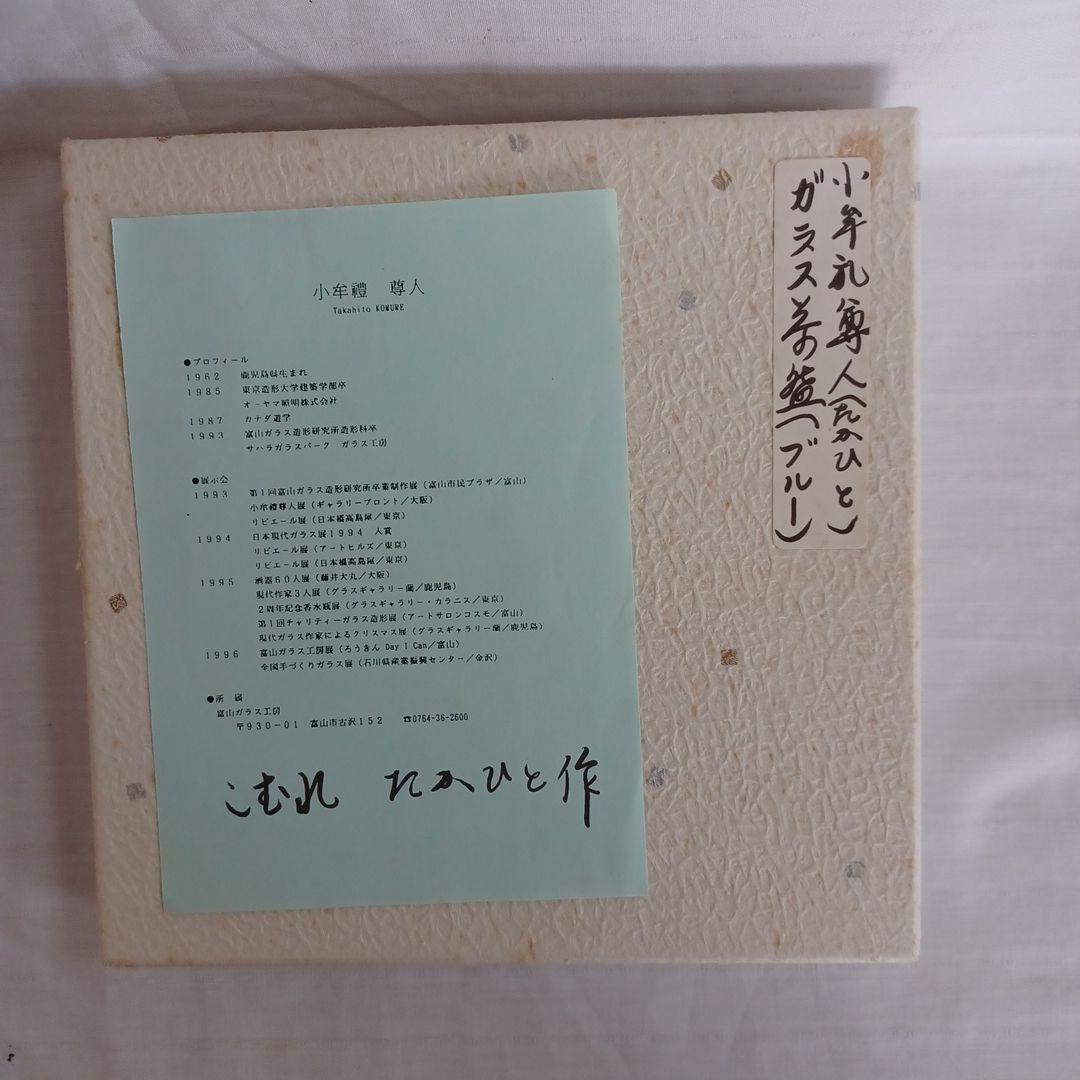 小牟禮　尊人
Takahito KOMURE
●プロフィール
１９６２　鹿児島県生まれ
１９８５　東京造形大学建築学部卒
オーヤマ照明株式会社
１９８７　カナダ遊学
１９９３　富山ガラス造形研究所造形科卒
サハラガラスパーク　ガラス工房
●展示会
１９９３　第１回富山ガラス造形研究所卒業制作展（富山市民プラザ／富山）
小牟禮尊人展（ギャラリープロント／大阪）
リビエール展（日本橋高島屋／東京）
１９９４　日本現代ガラス展１９９４　入賞
リビエール展（アートヒルズ／東京）
リビエール展（日本橋高島屋／東京）
１９９５　酒器６０人展（藤井大丸／大阪）
現代作家３人展（グラスギャラリー蘭／鹿児島）
２周年記念香水瓶展（グラスギャラリー・カラニス／東京）
第１回チャリティーガラス造形展（アートサロンコスモ／富山）
現代ガラス作家によるクリスマス展（グラスギャラリー蘭／鹿児島）
１９９６　富山ガラス工房展（ろうきん Day I Can／富山）
全国手づくりガラス展（石川県産業振興センター／金沢）
●所　属
富山ガラス工房
〒９３０－０１　富山市古沢１５２　☎0764-36-2600
こむれ　たかひと作
小牟礼尊人(たかひと)
ガラス (ブルー)